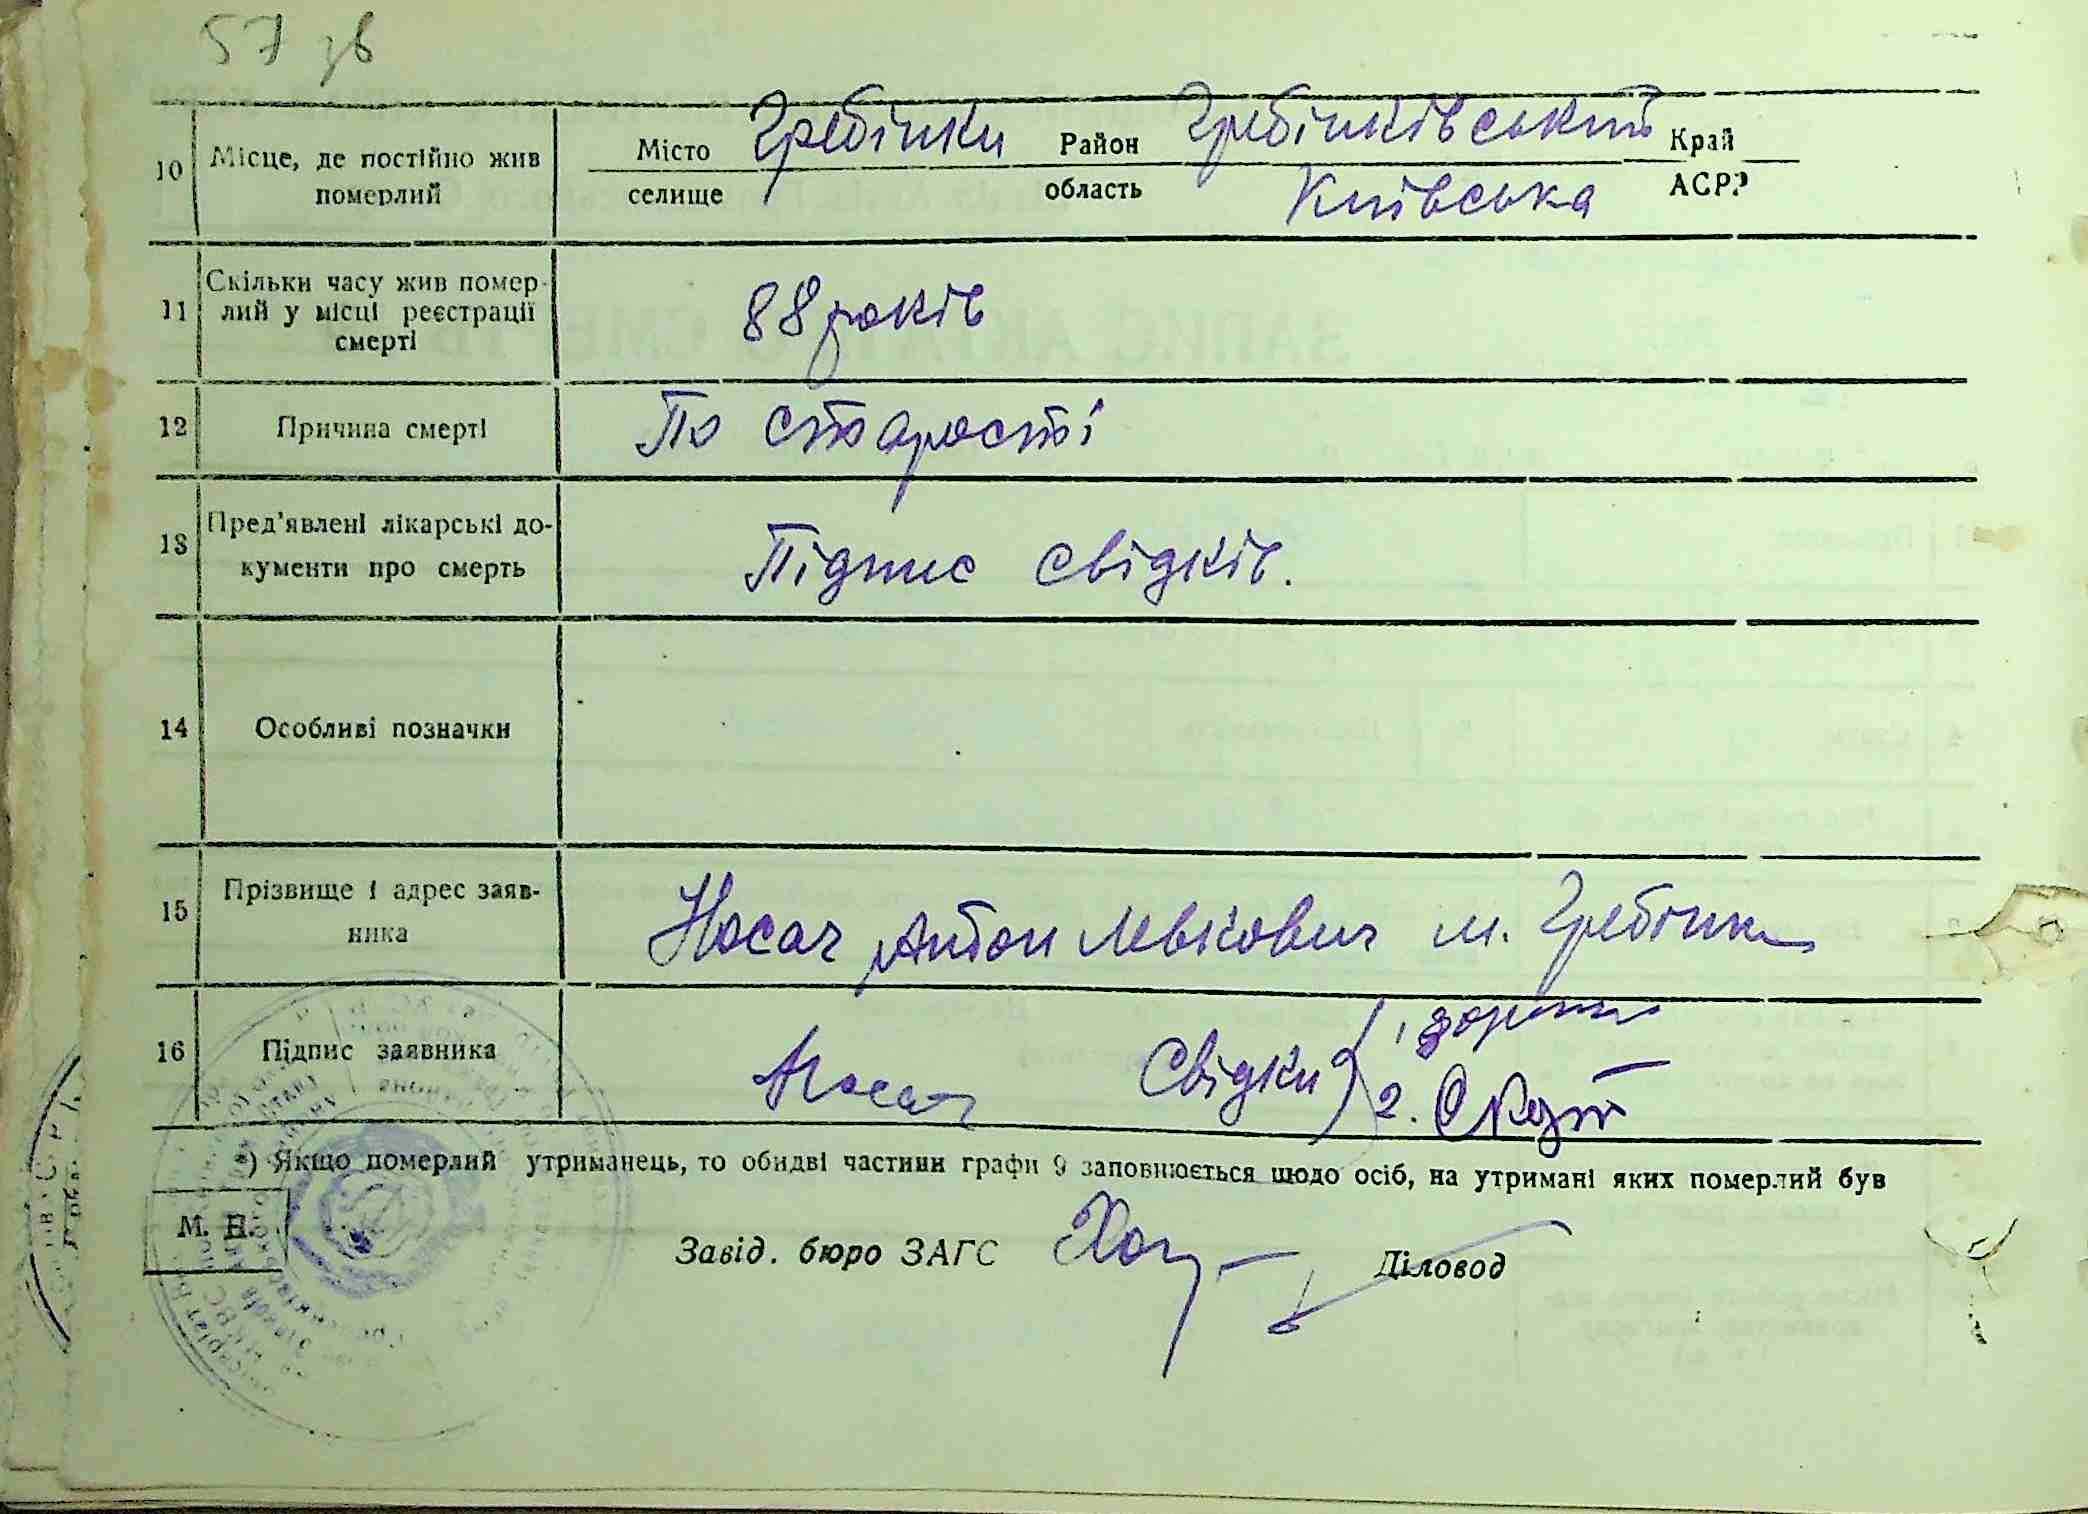 57 зв
10 Місце, де постійно жив померлий
Місто селище Гребінки Район область Гребінківський Київська Край АСРР
11 Скільки часу жив померлий у місці реєстрації смерті
88 років
12 Причина смерті
По старості
13 Пред'явлені лікарські документи про смерть
Підпис свідків.
14 Особливі позначки
15 Прізвище і адрес заявника
Носач Антон м. Гребінки
16 Підпис заявника
Носач Свідки 1
2.
*) Якщо померлий утриманець, то обидві частини графи 9 заповнюється щодо осіб, на утримані яких померлий був
М. П.
Завід. бюро ЗАГС Діловод